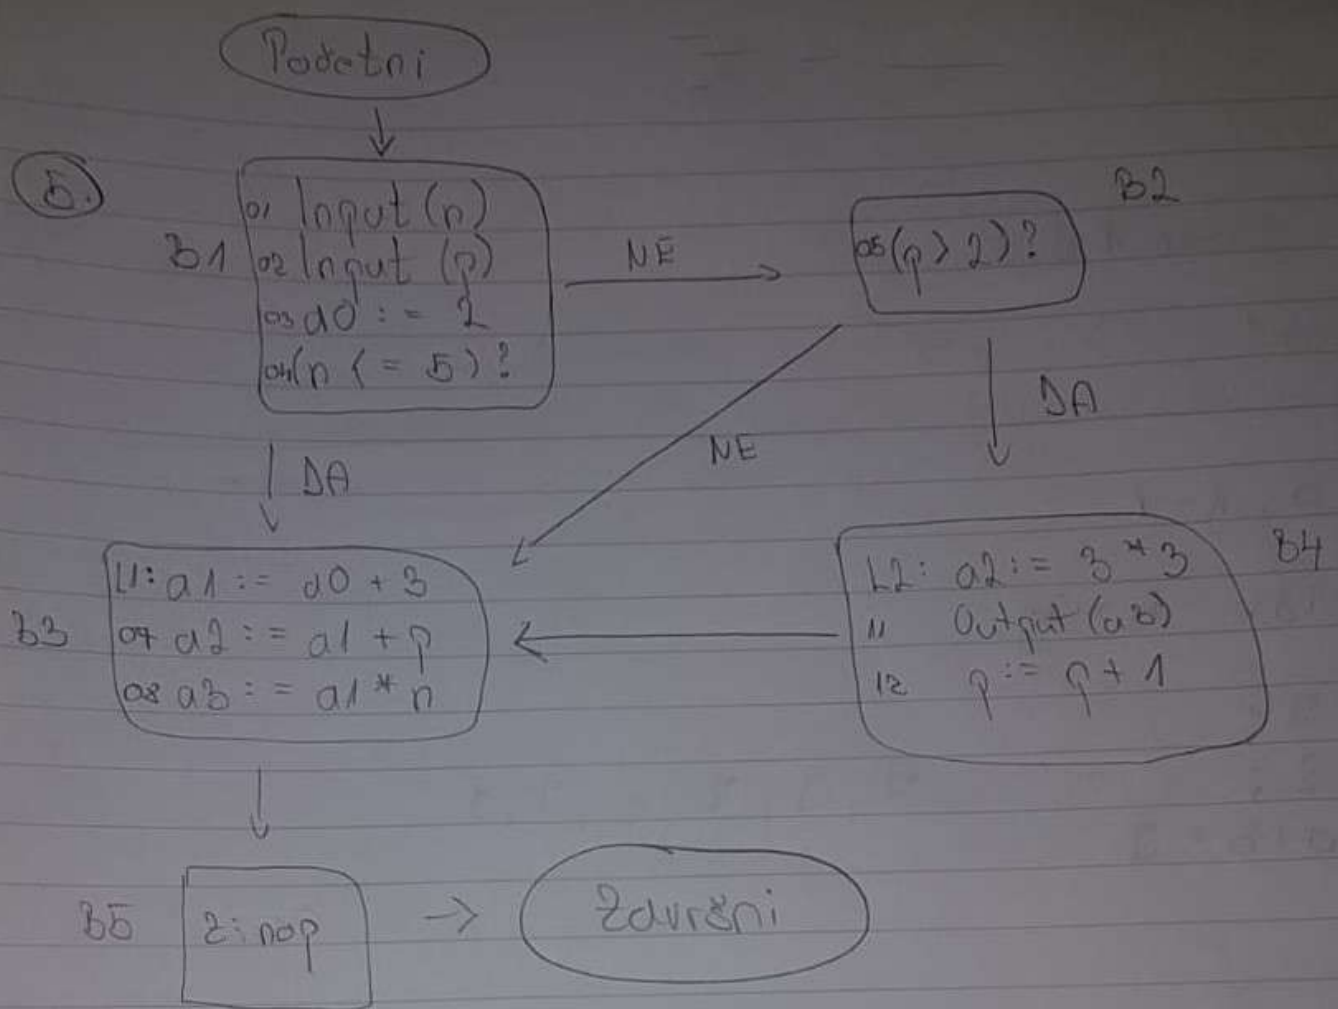 Početni
5.
B1
01 Input (n)
02 Input (p)
03 a0 := 2
04 (n <= 5)?
NE
B2
05 (p > 2)?
DA
NE
DA
B3
L1: a1 := a0 + 3
07 a2 := a1 + p
08 a3 := a1 * n
B4
L2: a2 := 3 * 3
11 Output (a3)
12 p := p + 1
B5
2: nop
Završni